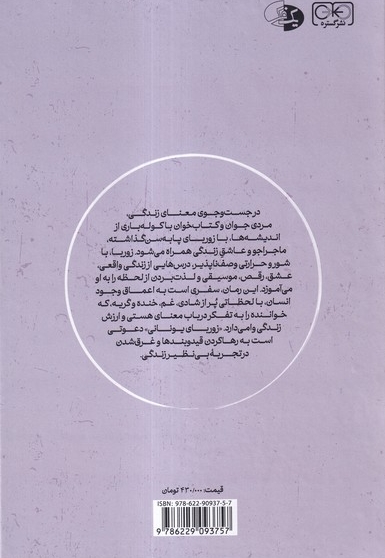 نشر گستره
در جست‌وجوی معنای زندگی،
مردی جوان و کتاب‌خوان با کوله‌باری از
اندیشه‌ها، با زوربای پا به سن گذاشته،
ماجراجو و عاشق زندگی همراه می‌شود. زوربا، با
شور و حرارتی وصف‌ناپذیر، درس‌هایی از زندگی واقعی،
عشق، رقص، موسیقی و لذت‌بردن از لحظه را به او
می‌آموزد. این رمان، سفری است به اعماق وجود
انسان، با لحظاتی پُر از شادی، غم، خنده و گریه، که
خواننده را به تفکر درباب معنای هستی و ارزش
زندگی وامی‌دارد. «زوربای یونانی» دعوتی
است به رهاکردن قیدوبندها و غرق‌شدن
در تجربهٔ بی‌نظیر زندگی.
قیمت: ۴۳۰/۰۰۰ تومان
ISBN: 978-622-90937-5-7
9 786229 093757